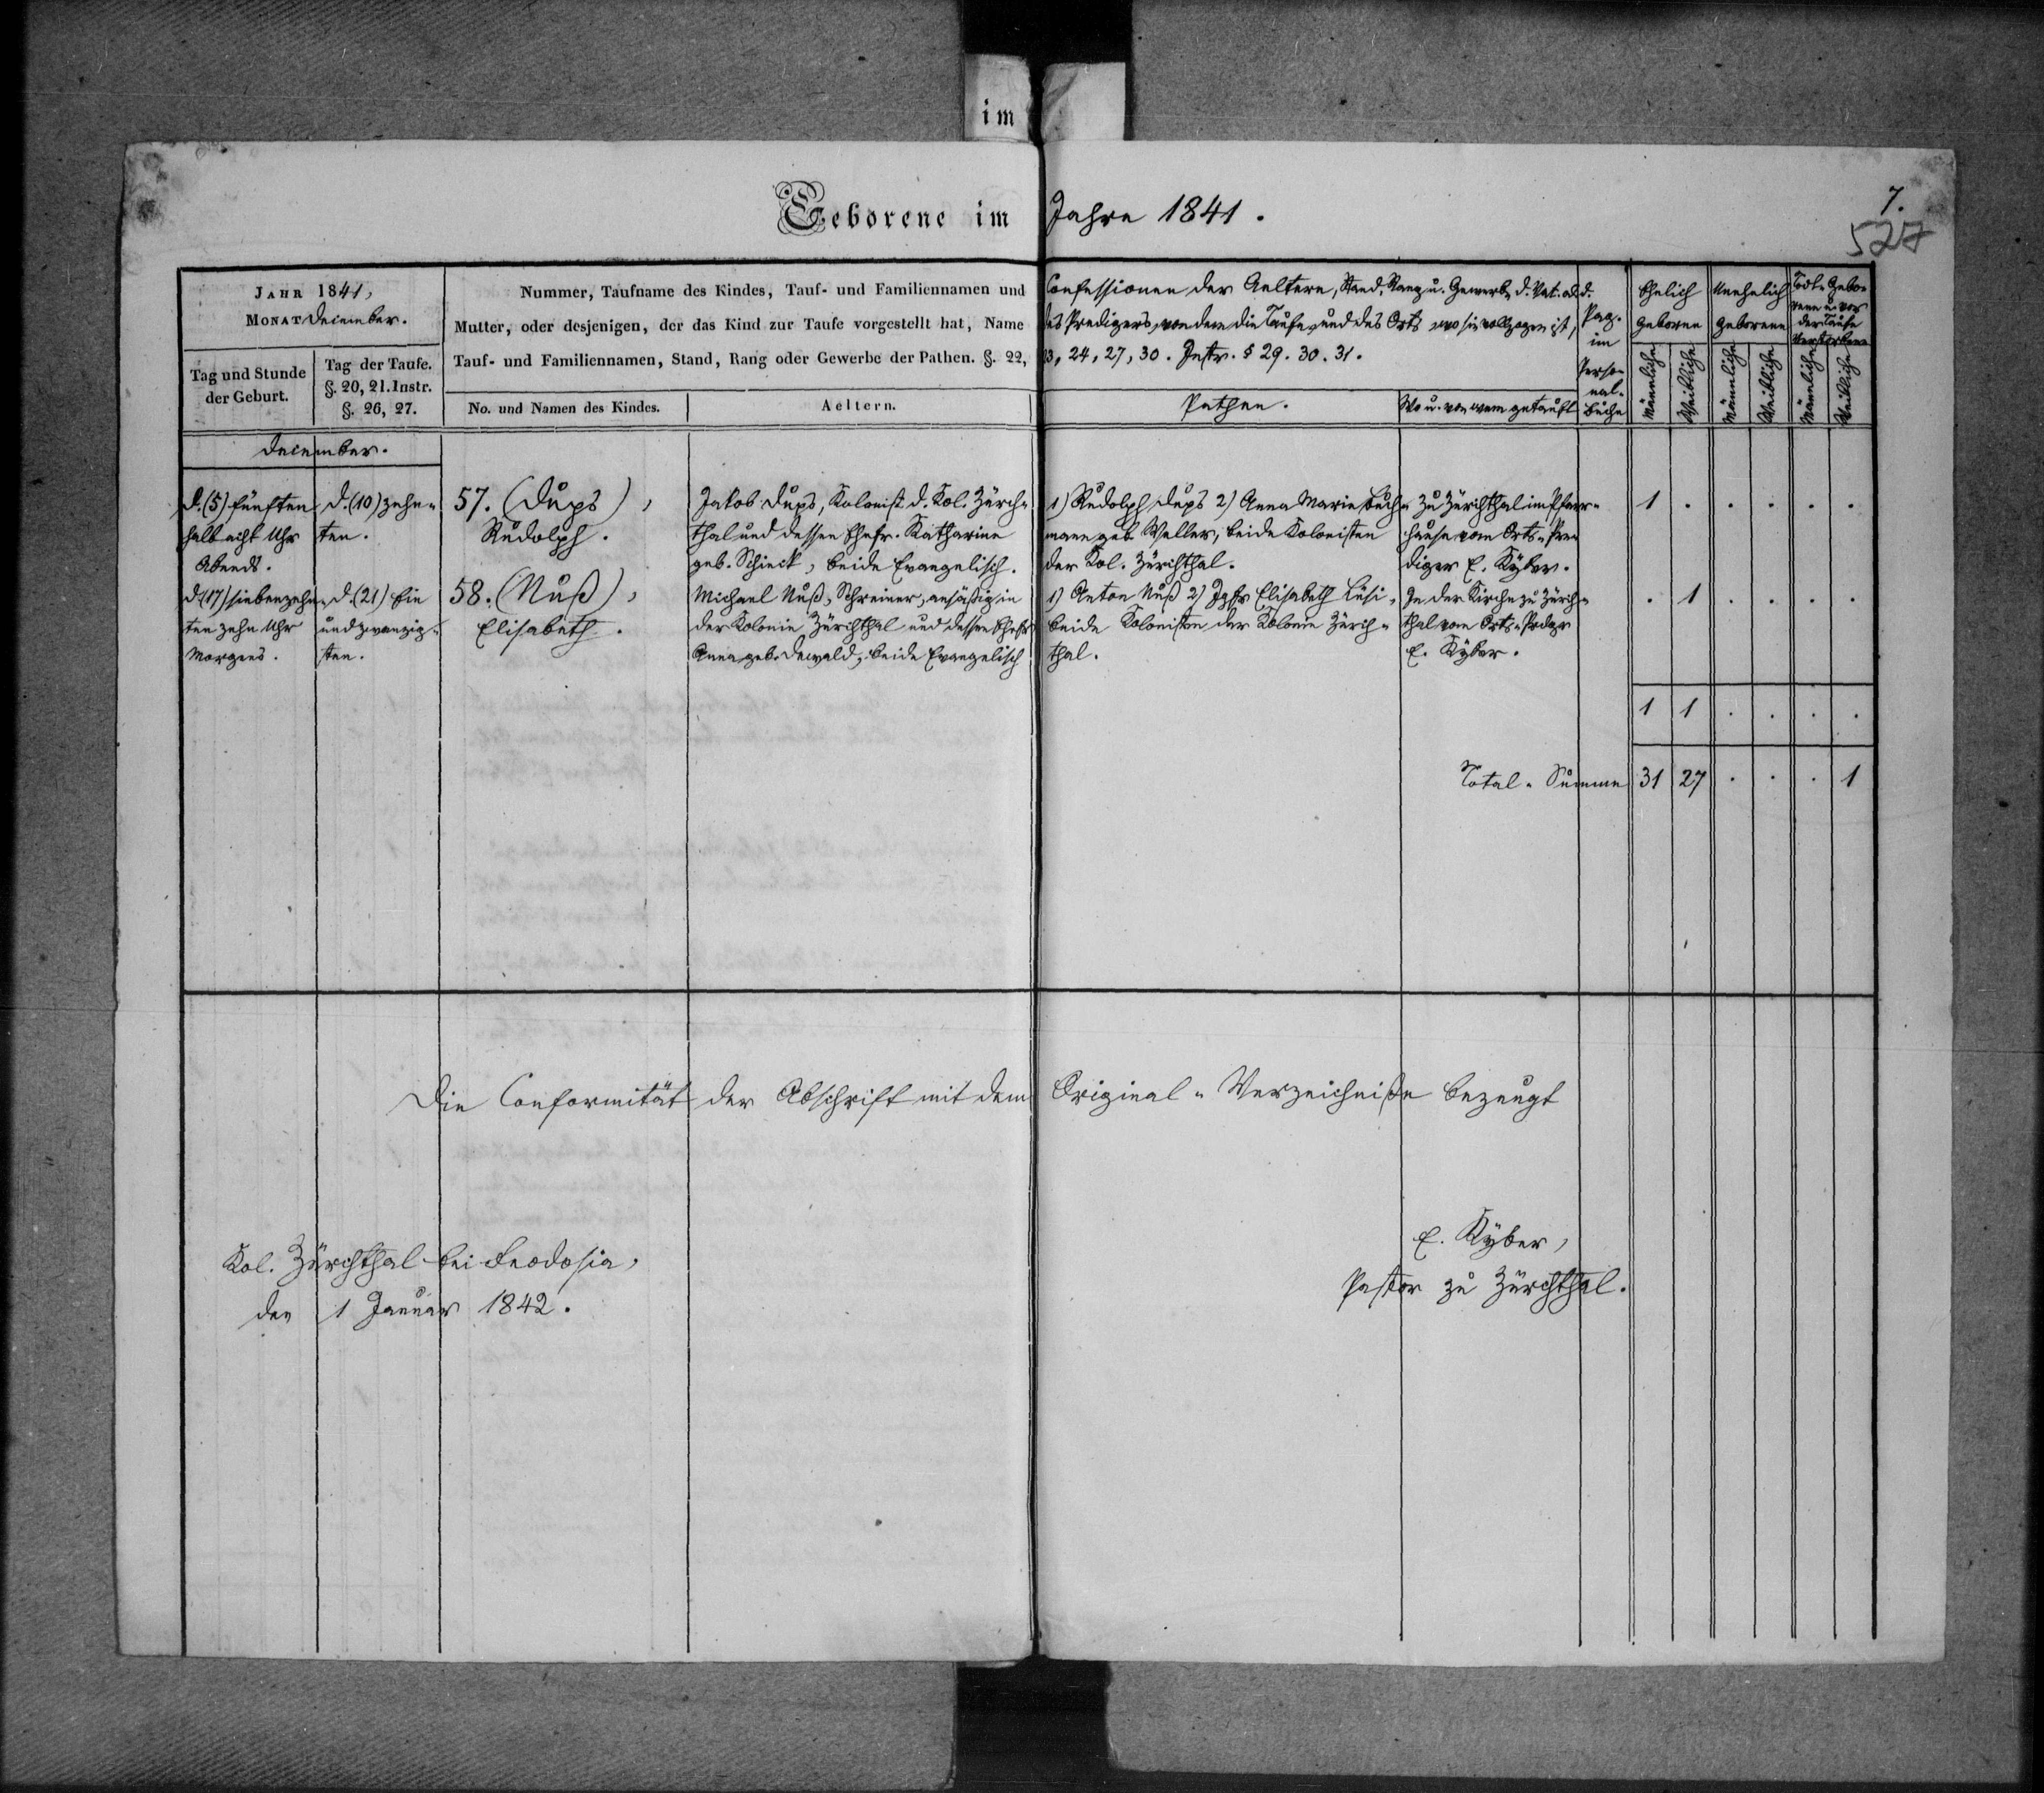 im
Geborene im Jahre 1841.
7.
527
JAHR 1841,
MONAT December.
Tag und Stunde
der Geburt.
Tag der Taufe.
§. 20, 21. Instr.
§. 26, 27.
Nummer, Taufname des Kindes, Tauf- und Familiennamen und Confessionen der Aeltern, Stand, Rang u. Gewerbe d. Vat. od. d.
Mutter, oder desjenigen, der das Kind zur Taufe vorgestellt hat, Name des Predigers, von dem die Taufe, und des Orts wo sie vollzogen ist,
Tauf- und Familiennamen, Stand, Rang oder Gewerbe der Pathen. §. 22, 23, 24, 27, 30. Instr. § 29. 30. 31.
No. und Namen des Kindes.
Aeltern.
Pathen.
Wo u. von wem getauft
Pag.
im
Perso-
nal-
buche
Ehelich
Geborene
Unehelich
Geborene
Todt Gebo-
rene u. vor
der Taufe
Verstorbene
Männliche
Weibliche
Männliche
Weibliche
Männliche
Weibliche
December.
d. (5) fünften
halb acht Uhr
Abends.
d. (10) zehn-
ten.
57. (Dups),
Rudolph.
Jakob Dups, Kolonist d. Kol. Zürch-
thal und dessen Ehefr. Katharine
geb. Schieck, beide Evangelisch.
1) Rudolph Dups 2) Anna Marie Buch-
mann geb. Weller, beide Kolonisten
der Kol. Zürchthal.
Zu Zürchthal im Pfarr-
hause vom Orts-Pre-
diger E. Kyber.
1 . . . . .
d. (17) siebenzehn-
ten zehn Uhr
Morgens.
d. (21) Ein
und zwanzig-
sten.
58. (Nuß),
Elisabeth.
Michael Nuß, Schreiner, ansäßig in
der Kolonie Zürchthal und dessen Ehefr
Anna geb. Dewald, beide Evangelisch
1) Anton Nuß 2) Jgfr Elisabeth Lüsi,
beide Kolonisten der Kolonie Zürch-
thal.
In der Kirche zu Zürch-
thal vom Orts-Prdgr
E. Kyber.
. 1 . . . .
1 1 . . . .
Total-Summe 31 27 . . . 1
Die Conformität der Abschrift mit dem Original-Verzeichniße bezeugt
E. Kyber,
Pastor zu Zürchthal.
Kol. Zürchthal bei Feodosia,
den 1 Januar 1842.